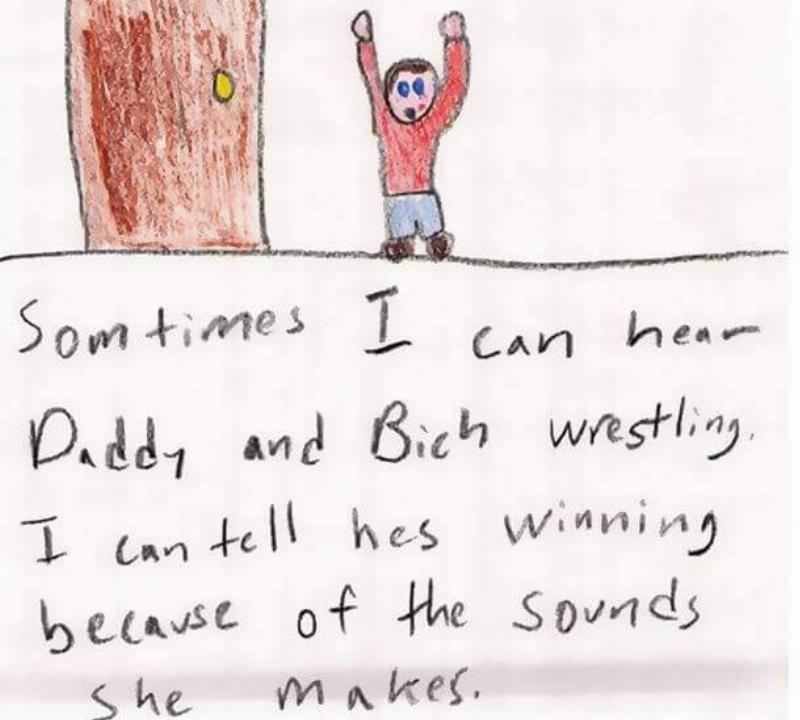 Somtimes I can hear
Daddy and Bich wrestling.
I can tell hes winning
because of the sounds
she makes.